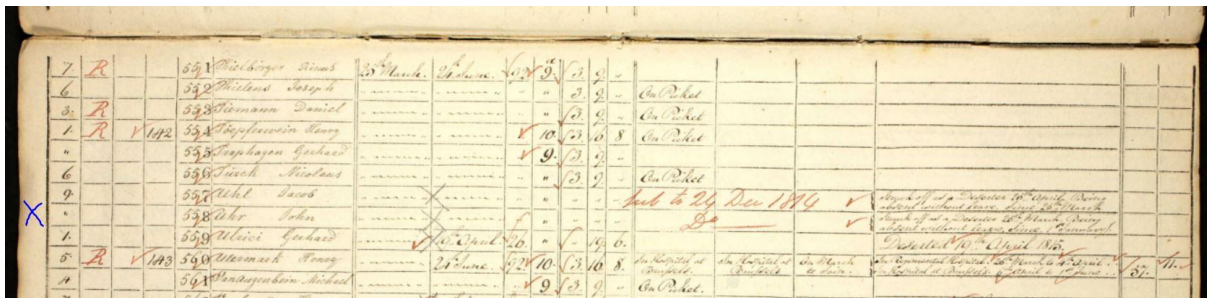 7. R 551 Rinus 25th March. 24th June. 92 9. 3. 9. "
6 552 Thielens Joseph " 3. 9. " On Picket
3. R 553 Tiemann Daniel " 3. 9. " On Picket
1. R 142 554 Toepferwein Henry 10. 3. 16 8. On Picket
" 555 Traphagen Gerhard 9. 3. 9. "
6 556 Türck Nicolaus " 3. 9. " On Picket
9. 557 Uhl Jacob to 24 Dec 1814 Struck off as a Deserter 25th April Being
absent without leave since 25th March
" 558 Uhr John Do Struck off as a Deserter 25th March Being
absent without leave since 1st
1. 559 Ulrici Gerhard 19th April. 26. " " 19. 6. Deserted 19th April 1815.
5. R 143 560 Utermark Henry 24th June. 92 10. 3. 16 8. In Hospital at Brussels. In Hospital at Brussels In March In Regimental Hospital. 25th March to April.
In Hospital at Brussels April to June 57. 11.
4 561 Michael 9 3. 9. On Picket.